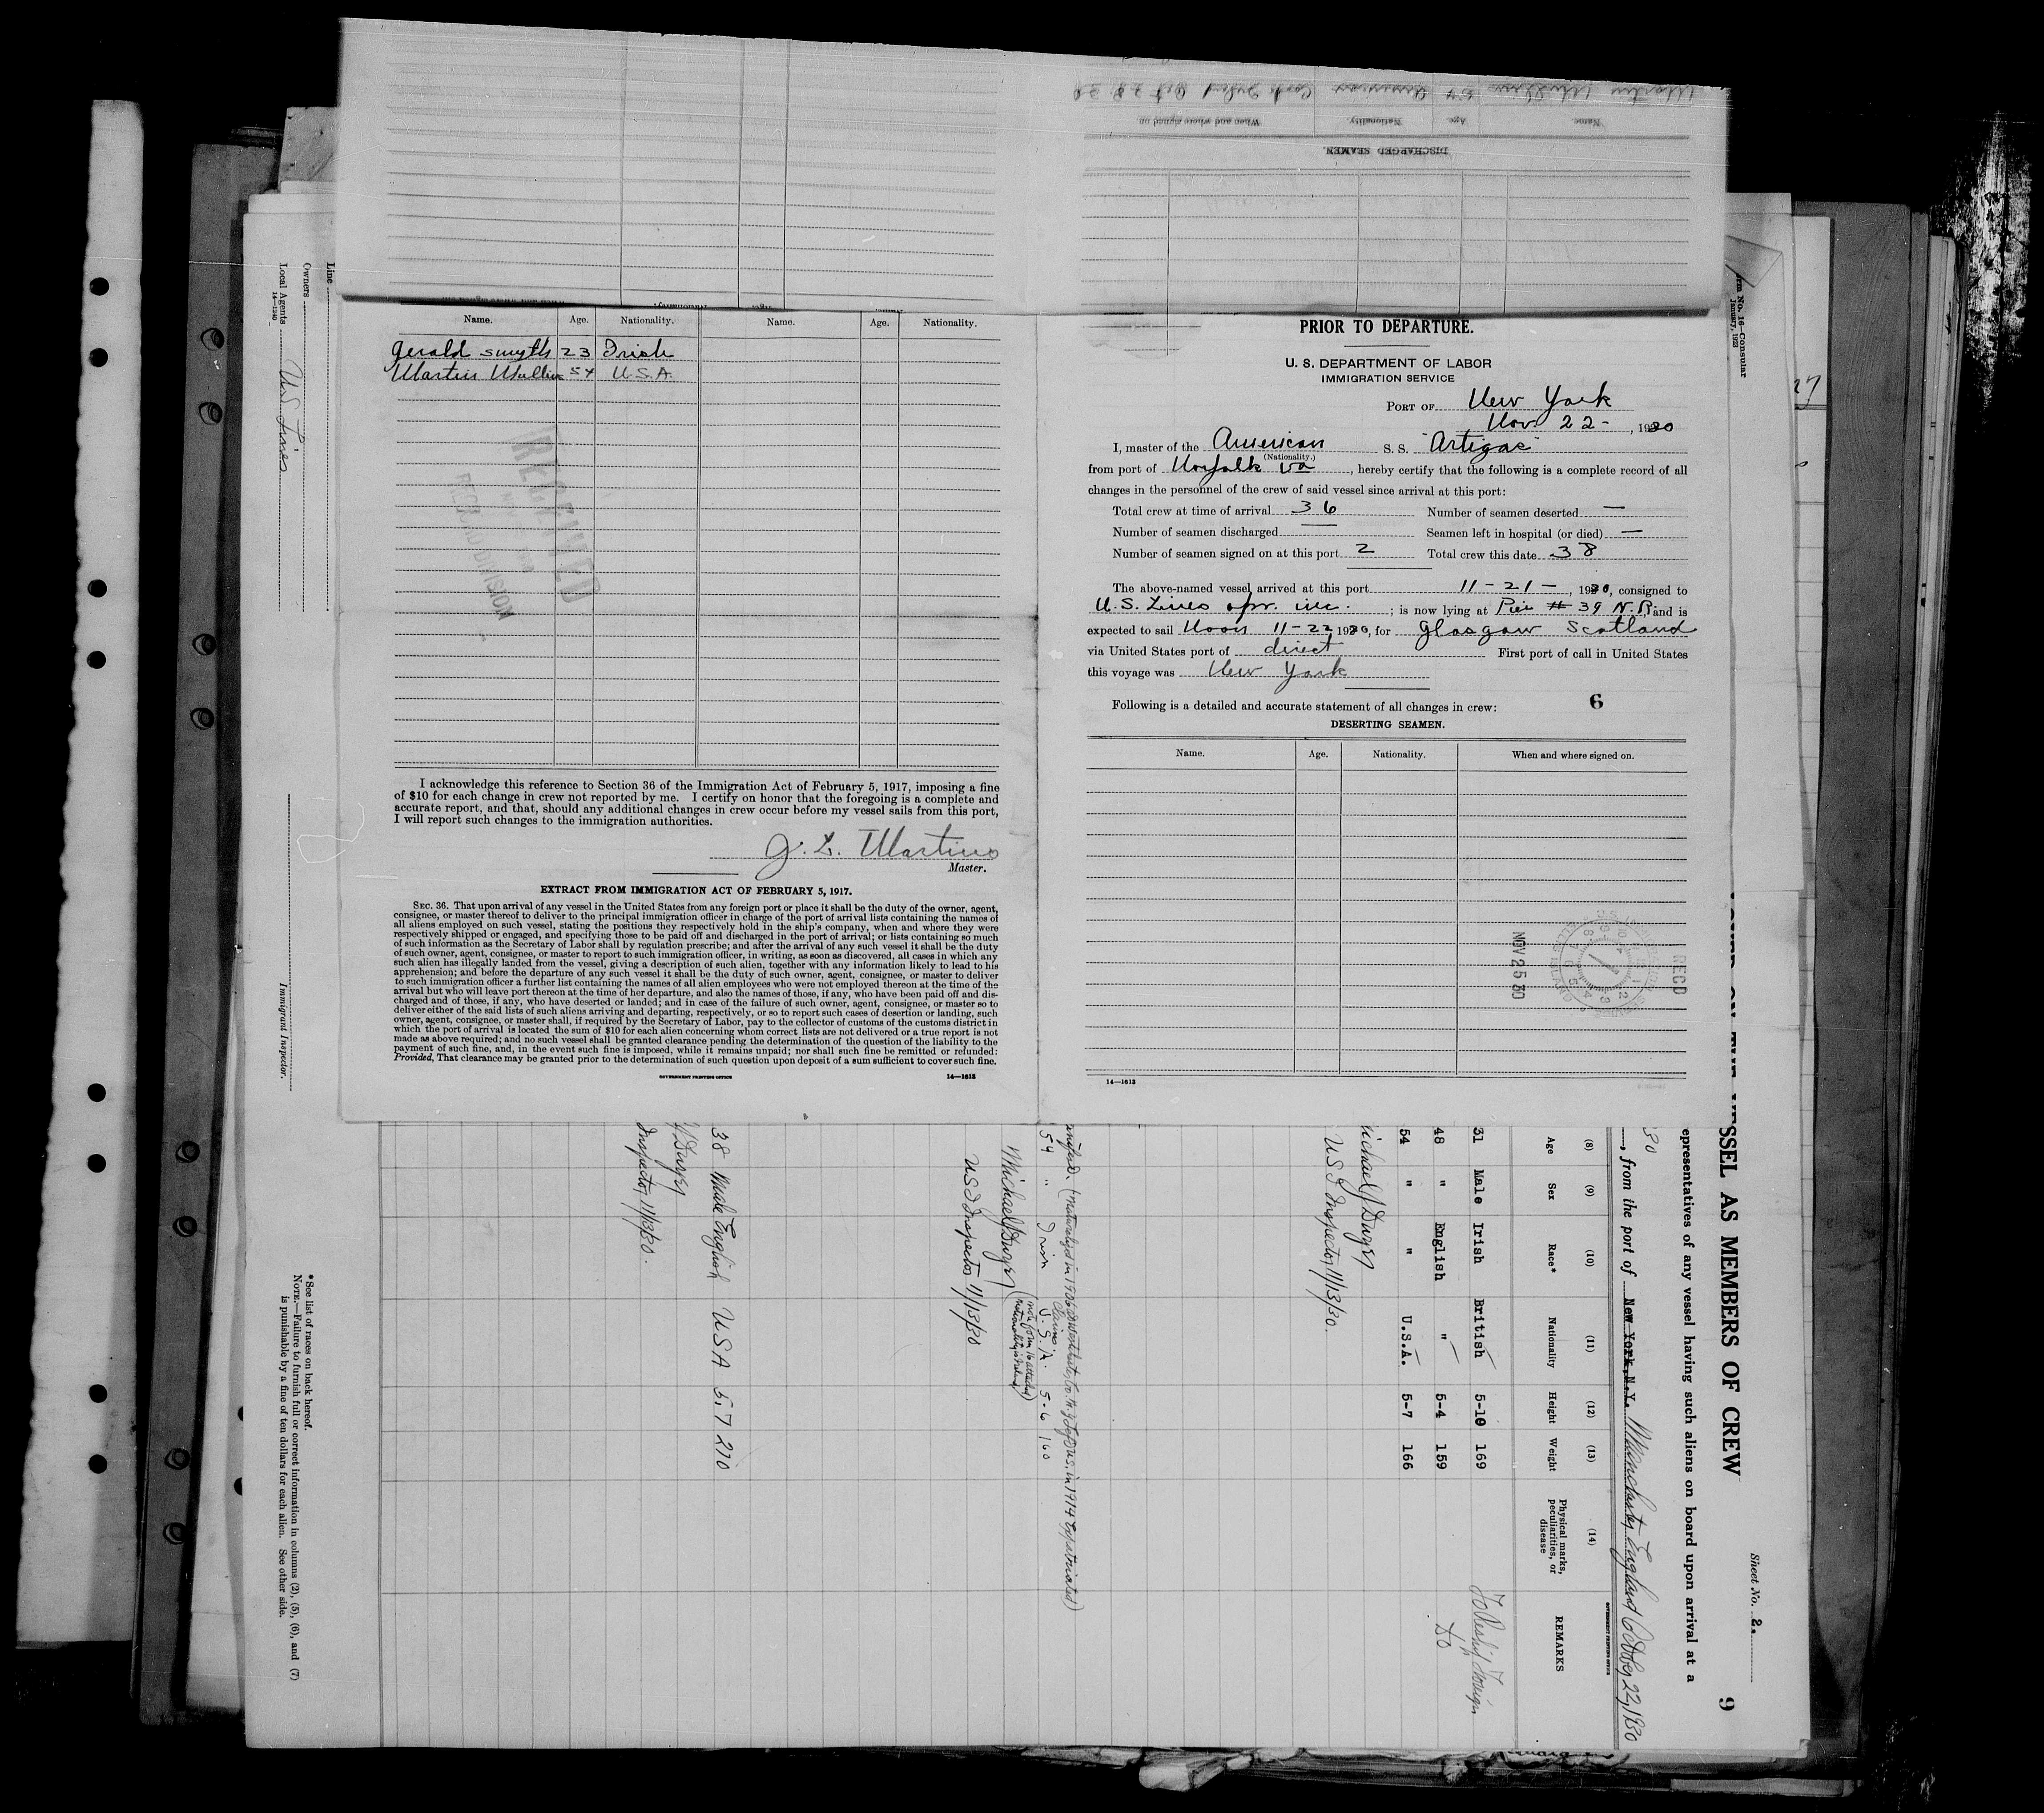 Martin Mullins 54 American Oct 28 30
Name. Age. Nationality. When and where signed on.
DISCHARGED SEAMEN.
Name. Age. Nationality. Name. Age. Nationality.
Gerald Smyth 23 Irish
Martin Mullins 54 U.S.A.
RECEIVED
RECORD DIVISION
I acknowledge this reference to Section 36 of the Immigration Act of February 5, 1917, imposing a fine
of $10 for each change in crew not reported by me. I certify on honor that the foregoing is a complete and
accurate report, and that, should any additional changes in crew occur before my vessel sails from this port,
I will report such changes to the immigration authorities.
J. L. Martino
Master.
EXTRACT FROM IMMIGRATION ACT OF FEBRUARY 5, 1917.
SEC. 36. That upon arrival of any vessel in the United States from any foreign port or place it shall be the duty of the owner, agent,
consignee, or master thereof to deliver to the principal immigration officer in charge of the port of arrival lists containing the names of
all aliens employed on such vessel, stating the positions they respectively hold in the ship's company, when and where they were
respectively shipped or engaged, and specifying those to be paid off and discharged in the port of arrival; or lists containing so much
of such information as the Secretary of Labor shall by regulation prescribe; and after the arrival of any such vessel it shall be the duty
of such owner, agent, consignee, or master to report to such immigration officer, in writing, as soon as discovered, all cases in which any
such alien has illegally landed from the vessel, giving a description of such alien, together with any information likely to lead to his
apprehension; and before the departure of any such vessel it shall be the duty of such owner, agent, consignee, or master to deliver
to such immigration officer a further list containing the names of all alien employees who were not employed thereon at the time of the
arrival but who will leave port thereon at the time of her departure, and also the names of those, if any, who have been paid off and dis-
charged and of those, if any, who have deserted or landed; and in case of the failure of such owner, agent, consignee, or master so to
deliver either of the said lists of such aliens arriving and departing, respectively, or so to report such cases of desertion or landing, such
owner, agent, consignee, or master shall, if required by the Secretary of Labor, pay to the collector of customs of the customs district in
which the port of arrival is located the sum of $10 for each alien concerning whom correct lists are not delivered or a true report is not
made as above required; and no such vessel shall be granted clearance pending the determination of the question of the liability to the
payment of such fine, and, in the event such fine is imposed, while it remains unpaid; nor shall such fine be remitted or refunded:
Provided, That clearance may be granted prior to the determination of such question upon deposit of a sum sufficient to cover such fine.
GOVERNMENT PRINTING OFFICE 14—1613
PRIOR TO DEPARTURE.
U. S. DEPARTMENT OF LABOR
IMMIGRATION SERVICE
PORT OF New York
Nov 22-, 1930
I, master of the American S. S. "Artigas"
(Nationality.)
from port of Norfolk Va, hereby certify that the following is a complete record of all
changes in the personnel of the crew of said vessel since arrival at this port:
Total crew at time of arrival 36 Number of seamen deserted —
Number of seamen discharged — Seamen left in hospital (or died) —
Number of seamen signed on at this port 2 Total crew this date 38
The above-named vessel arrived at this port 11-21-, 1930, consigned to
U.S. Lines opr. inc.; is now lying at Pier # 39 N.R, and is
expected to sail Noon 11-22 1930, for Glasgow Scotland
via United States port of direct First port of call in United States
this voyage was New York
Following is a detailed and accurate statement of all changes in crew: 6
DESERTING SEAMEN.
Name. Age. Nationality. When and where signed on.
NOV 25 30
REC'D
14—1613
Line
Owners
Local Agents U.S Lines
14—1240
Immigrant Inspector.
*See list of races on back hereof.
NOTE.—Failure to furnish full or correct information in columns (2), (5), (6), and (7)
is punishable by a fine of ten dollars for each alien. See other side.
rm No. 16—Consular
January, 1923
27
Sheet No. 2.
9
SSEL AS MEMBERS OF CREW
epresentatives of any vessel having such aliens on board upon arrival at a
30
, from the port of New York, N.Y. Manchester, England October 22, 1930
(8) (9) (10) (11) (12) (13) (14)
Age Sex Race* Nationality Height Weight Physical marks, peculiarities, or disease REMARKS
GOVERNMENT PRINTING OFFICE
31 Male Irish British 5-10 169 To Reship Foreign
48 " English " 5-4 159 do
54 " " U.S.A. 5-7 166
ichael J Dwyer
US I Inspector 11/13/30.
54 " Irish Claims U.S.A. 5-6 160
Michael J Dwyer
US I Inspector 11/13/30
38 Male English USA 5,7 210
J Dwyer
Inspector 11/13/30.